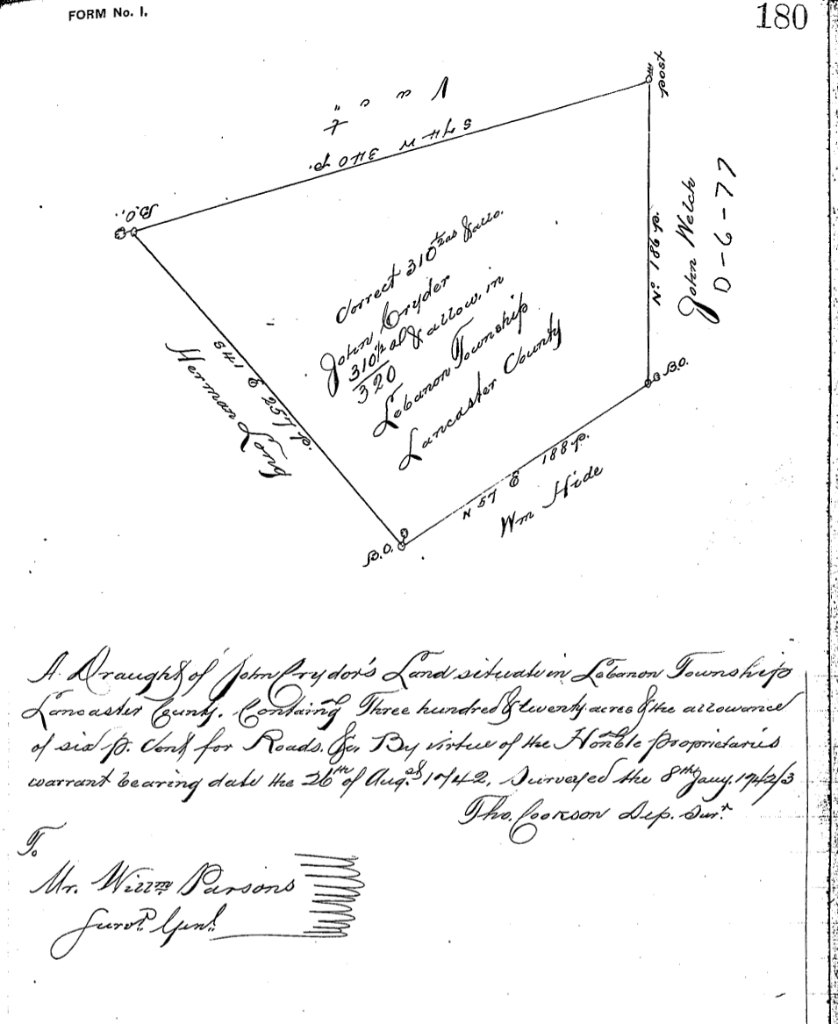 FORM No. I.
180
Vac't
S 74 W 340 p.
post
B.O.
No. 186 p.
John Welch
D-6-77
Correct 310 1/2 as & allo.
John Cryder
310 1/2 al & allow. in
320
Lebanon Township
Lancaster County
Herman Long
S 41 E 257 p.
B.O.
N 57 E 188 p.
Wm Hide
B.O.
A Draught of John Crydor's Land situate in Lebanon Township
Lancaster County. Containg Three hundred & twenty acres & the allowance
of six p. Cent for Roads. &c. By virtue of the Honble proprietaries
warrant bearing date the 26th of Augst 1742, Surveyed the 8th Jany. 1742/3
Tho. Cookson Dep. Surr.
To
Mr. Willm Parsons
Survr. Genl.